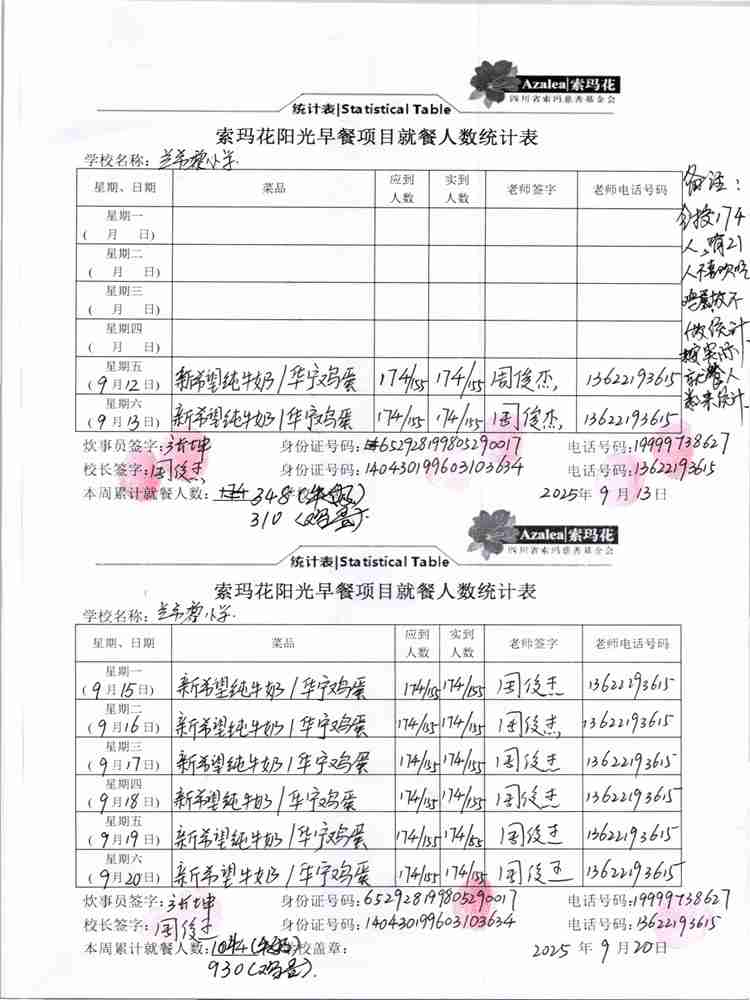 Azalea|索玛花
四川省索玛慈善基金会
统计表|Statistical Table
索玛花阳光早餐项目就餐人数统计表
学校名称：兰韦敦小学
星期、日期 菜品 应到人数 实到人数 老师签字 老师电话号码
星期一 ( 月 日)
星期二 ( 月 日)
星期三 ( 月 日)
星期四 ( 月 日)
星期五 (9月12日) 新希望纯牛奶/华宁鸡蛋 174/155 174/155 周俊杰 13622193615
星期六 (9月13日) 新希望纯牛奶/华宁鸡蛋 174/155 174/155 周俊杰 13622193615
备注：
全校174
人,有21
人不喜欢吃
鸡蛋故不
做统计
按实际
就餐人
数来统计
炊事员签字: 身份证号码:652928199805290017 电话号码:19999738627
校长签字:周俊杰 身份证号码:140430199603103634 电话号码:13622193615
本周累计就餐人数: 348(牛奶) 2025年9月13日
310(鸡蛋).
Azalea|索玛花
四川省索玛慈善基金会
统计表|Statistical Table
索玛花阳光早餐项目就餐人数统计表
学校名称：兰韦敦小学
星期、日期 菜品 应到人数 实到人数 老师签字 老师电话号码
星期一 (9月15日) 新希望纯牛奶/华宁鸡蛋 174/155 174/155 周俊杰 13622193615
星期二 (9月16日) 新希望纯牛奶/华宁鸡蛋 174/155 174/155 周俊杰 13622193615
星期三 (9月17日) 新希望纯牛奶/华宁鸡蛋 174/155 174/155 周俊杰 13622193615
星期四 (9月18日) 新希望纯牛奶/华宁鸡蛋 174/155 174/155 周俊杰 13622193615
星期五 (9月19日) 新希望纯牛奶/华宁鸡蛋 174/155 174/155 周俊杰 13622193615
星期六 (9月20日) 新希望纯牛奶/华宁鸡蛋 174/155 174/155 周俊杰 13622193615
炊事员签字: 身份证号码:652928199805290017 电话号码:19999738627
校长签字:周俊杰 身份证号码:140430199603103634 电话号码:13622193615
本周累计就餐人数:1044(牛奶) 学校盖章: 2025年9月20日
930(鸡蛋).